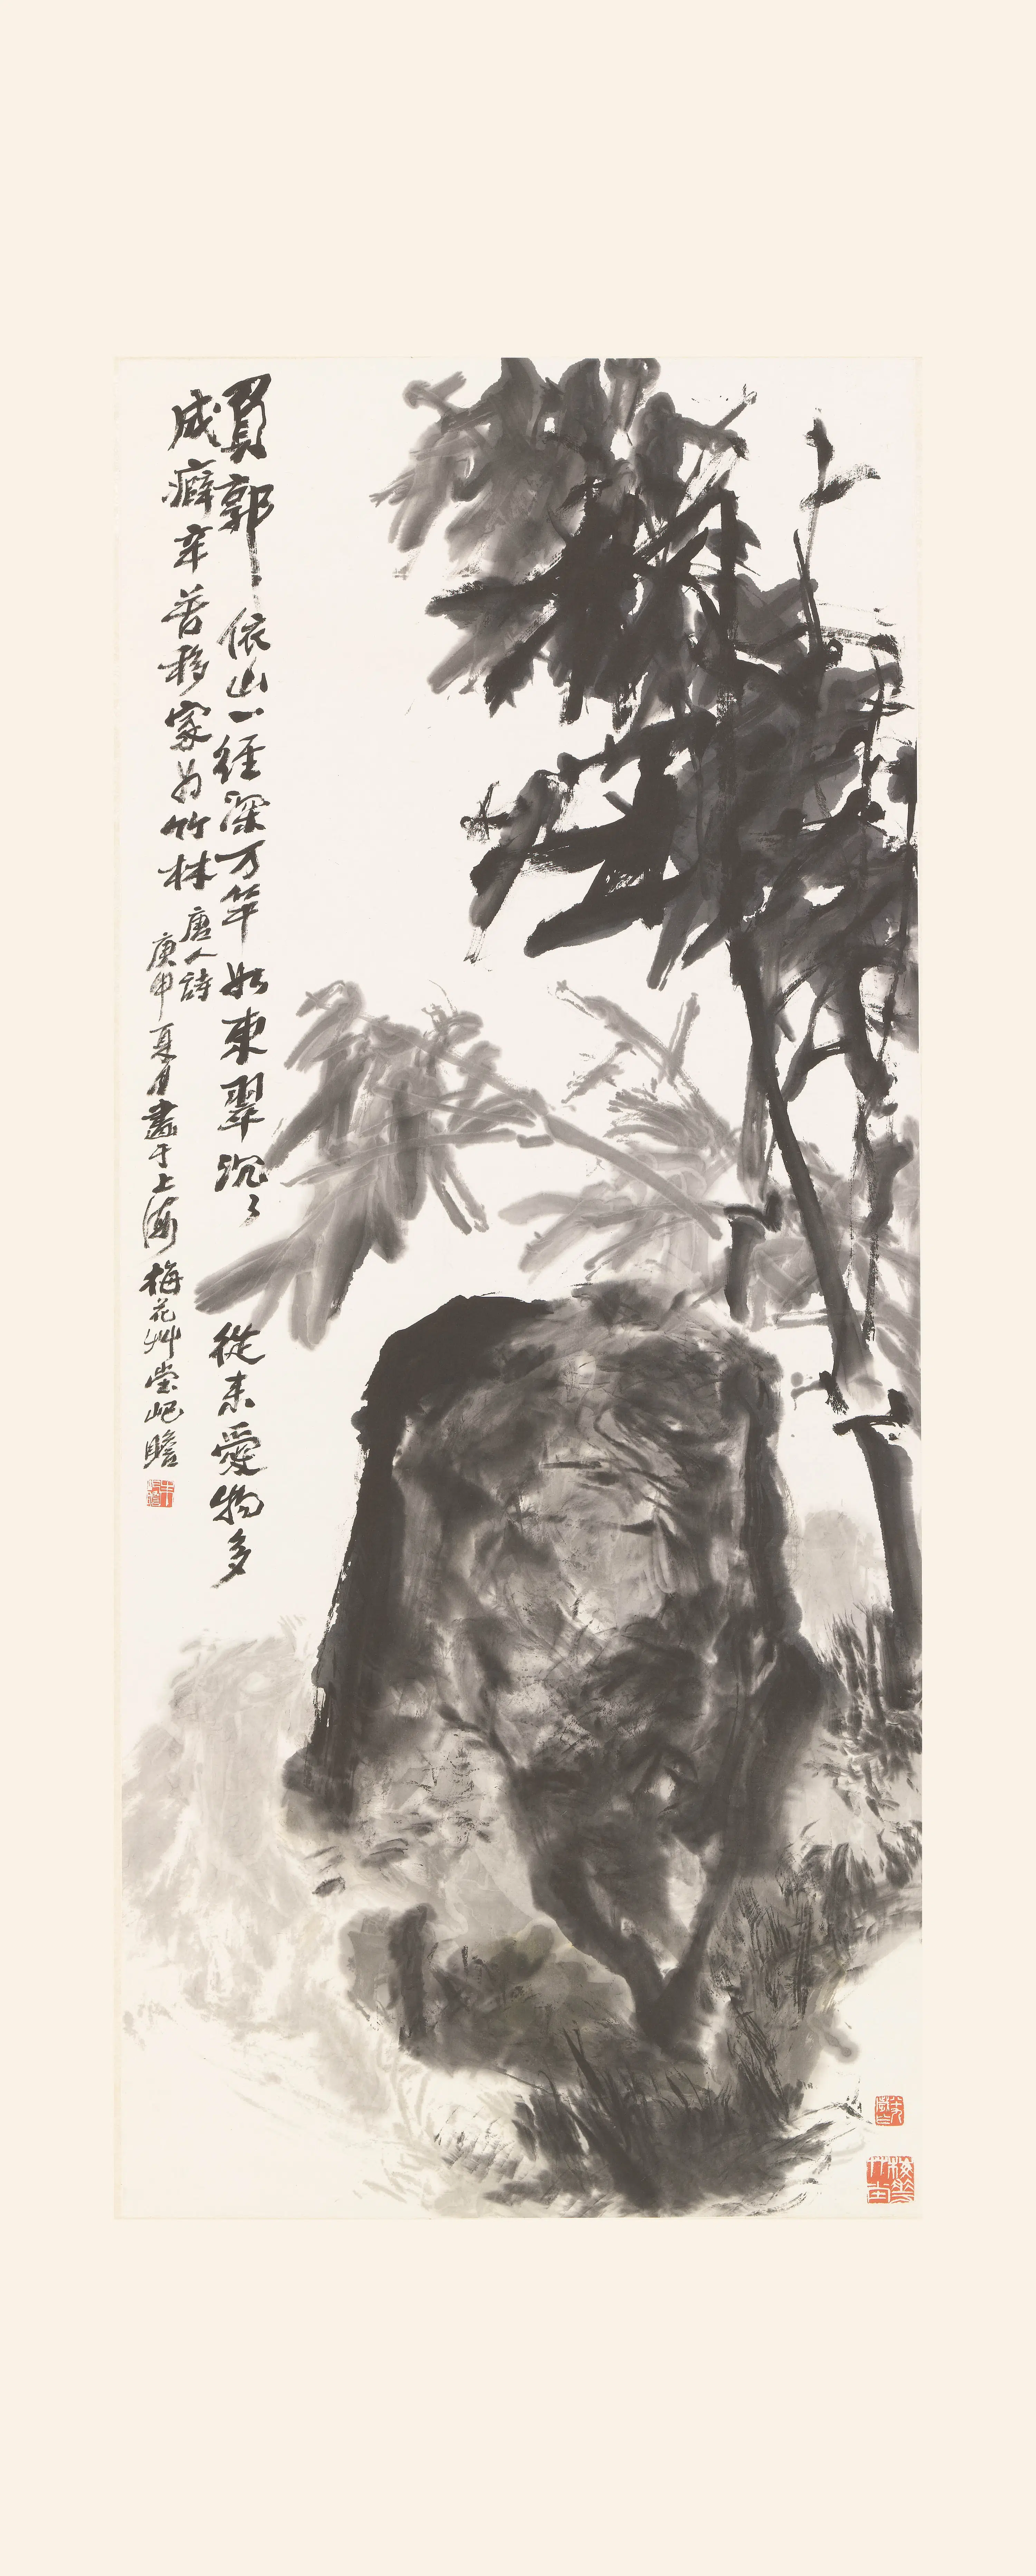 負郭依山一徑深万竿如束翠沉〻從来愛物多
成癖辛苦移家為竹林
唐人詩
庚申夏月畫于上海梅花艸堂屺瞻